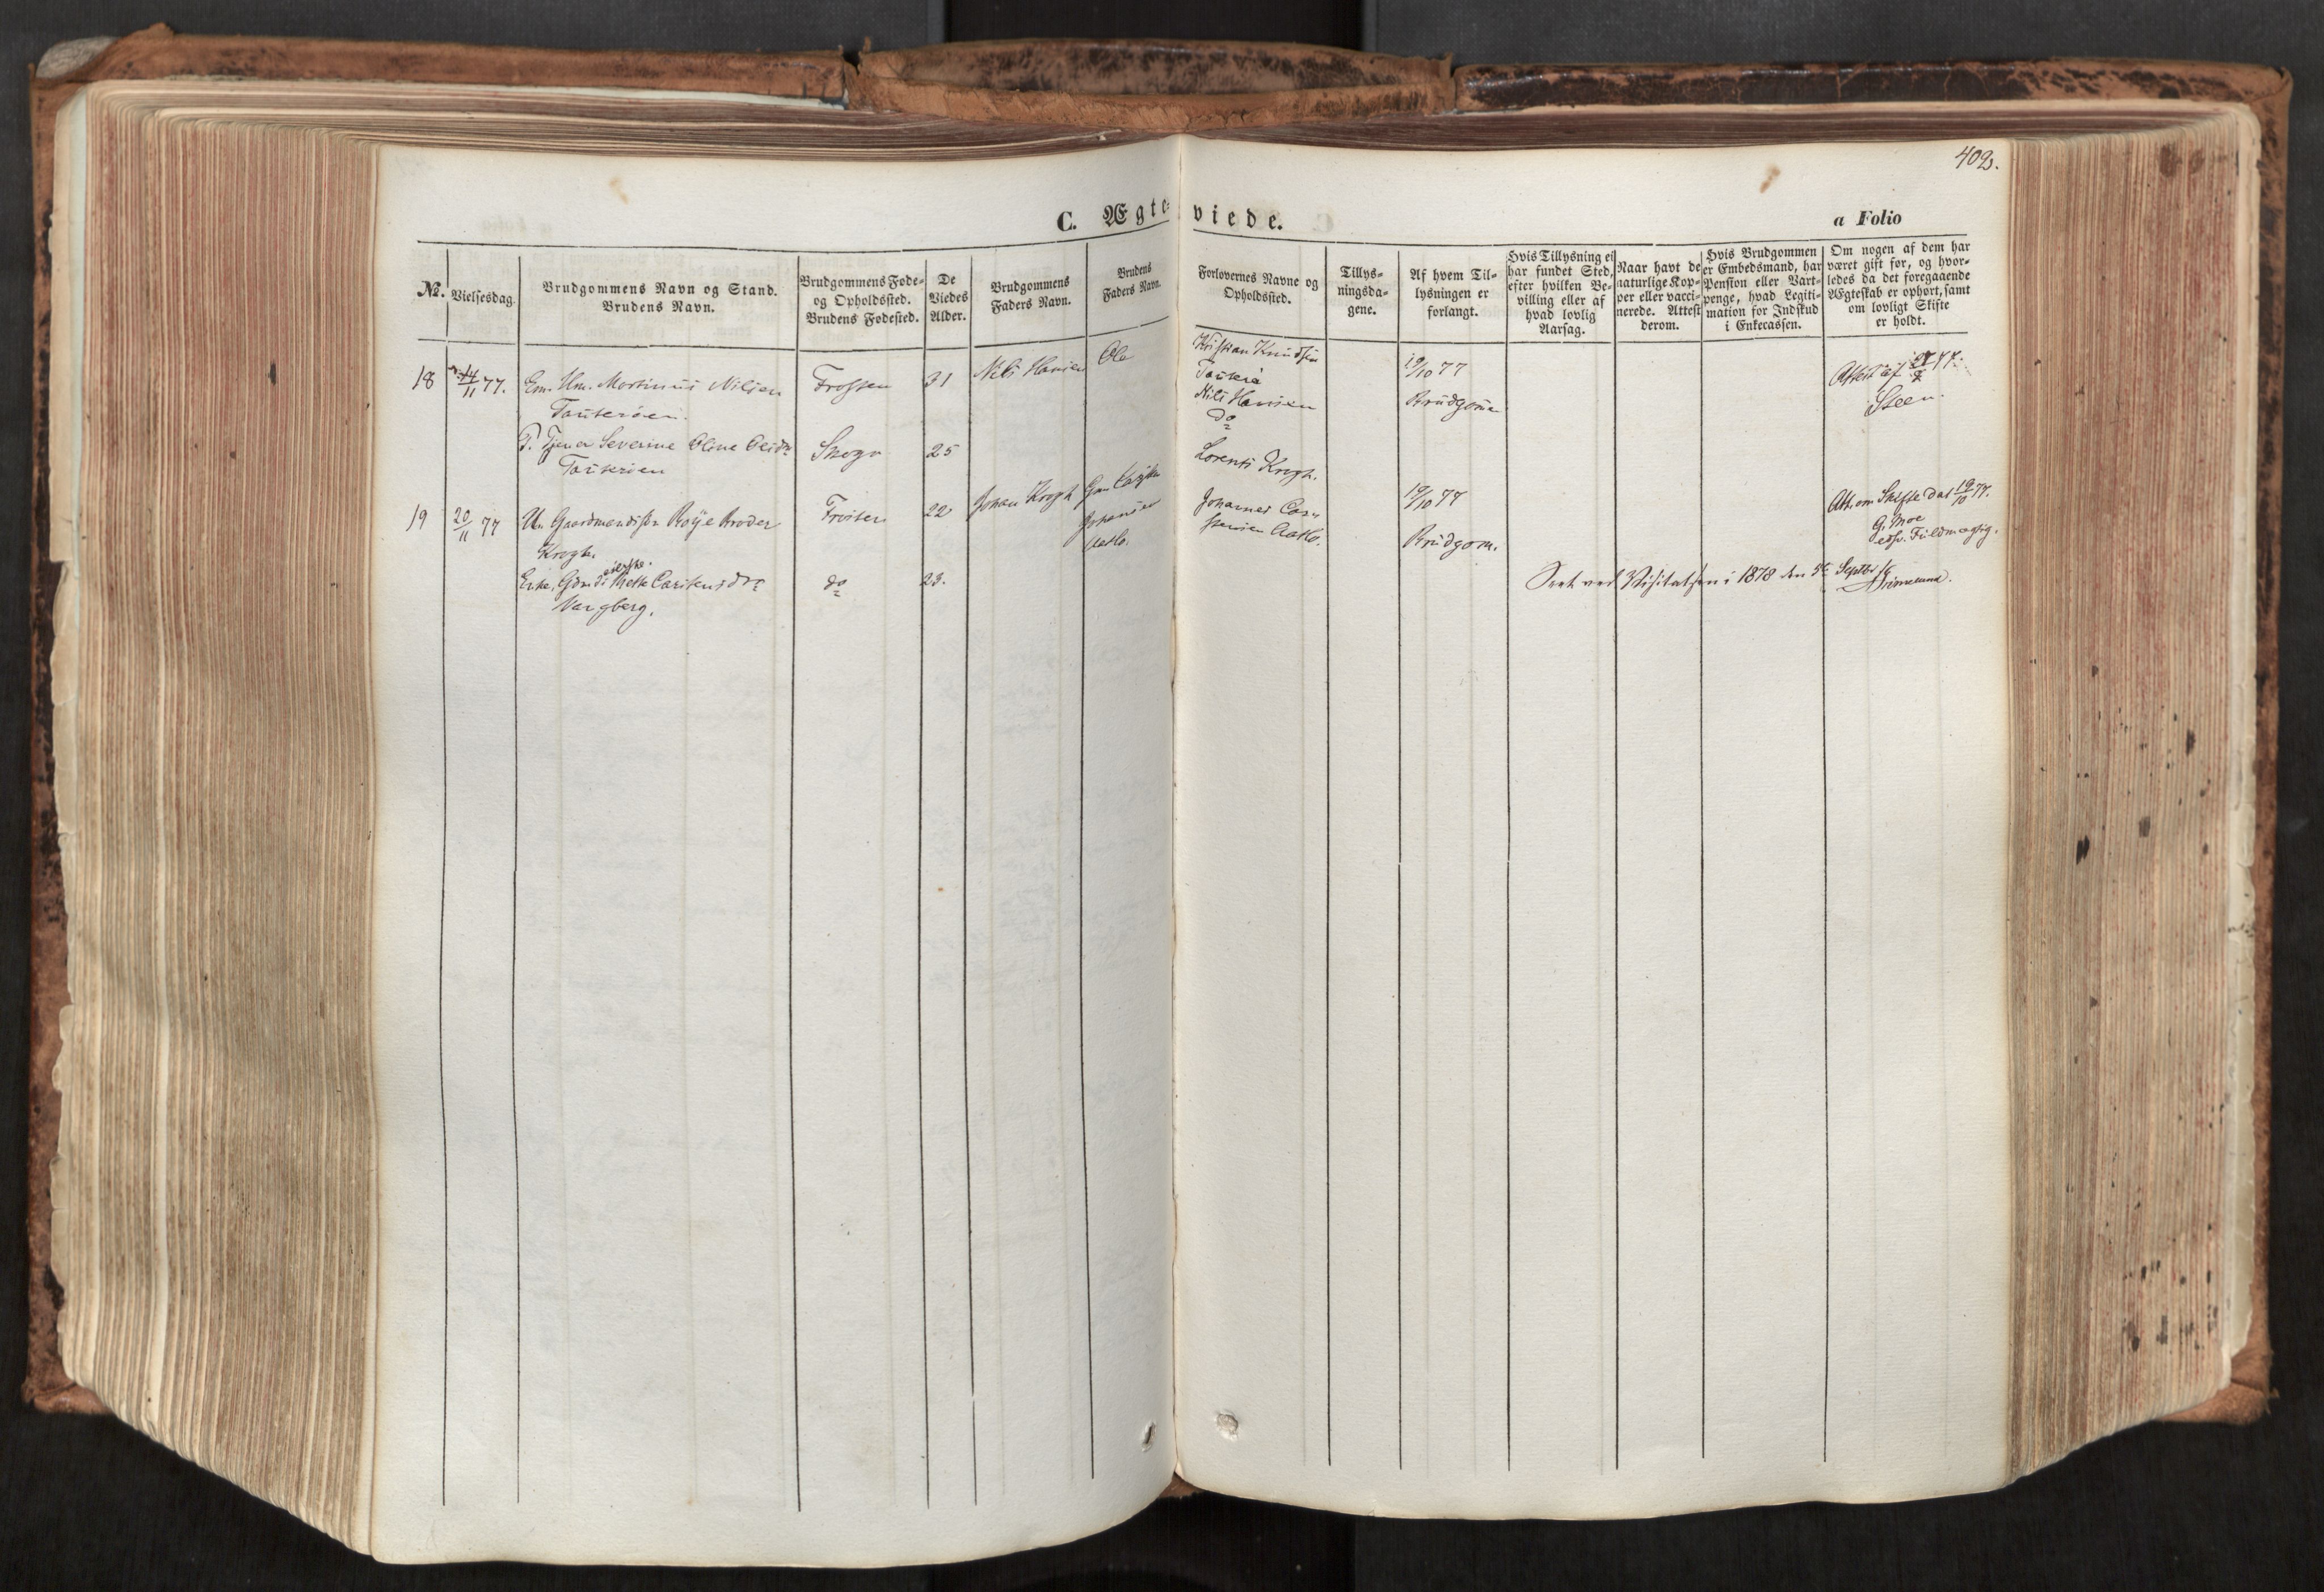 402.
C. Ægte-
viede.
a Folio
No.
Vielsesdag.
Brudgommens Navn og Stand.
Brudens Navn.
Brudgommens Føde-
og Opholdssted.
Brudens Fødested.
De
Viedes
Alder.
Brudgommens
Faders Navn.
Brudens
Faders Navn.
Forlovernes Navne og
Opholdssted.
Tillys-
ningsda-
gene.
Af hvem Til-
lysningen er
forlangt.
Hvis Tillysning ei
har fundet Sted,
efter hvilken Be-
villing eller af
hvad lovlig
Aarsag.
Naar havt de
naturlige Kop-
per eller vacci-
nerede. Attest
derom.
Hvis Brudgommen
er Embedsmand, har
Pension eller Vart-
penge, hvad Legiti-
mation for Indskud
i Enkecassen.
Om nogen af dem har
været gift før, og hvor-
ledes da det foregaaende
Ægteskab er ophørt, samt
om lovligt Skifte
er holdt.
18
14/11 77.
Em. Um. Martinus Nilsen
Tauterøen.
Frossen
31
Nils Hansen
Ole
Kristian Knudsen
Tauterø
Nils Hansen
do
19/10 77
Brudgom
Attest af 77.
Steen.
P. Tjener Severine Oline Olsdtr
Tauterøen
Skogn
25
19
20/11 77
U. Gaardmandssøn Røye Broder
Krogh.
Frosten
22
Johan Krogh
Gm Carsten
Johansen
Aatlo.
Lorents Krogh.
Johannes Car-
stensen Aatlo.
19/10 77
Brudgom.
Att. om Skifte dat 19/10 77.
G. Moe
esv. Fuldmægtig.
Enke, Gdmds Mette Carstensdtr
eierske.
Vangberg.
do
23.
Seet ved Visitatsen i 1878 den 5te Septbr